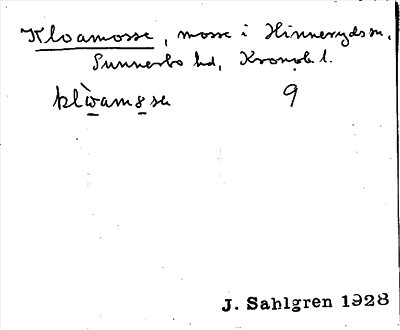 Kloamosse, mosse i Hinneryds sn,
Sunnerbo hd, Kronob. l.
klòamosse 9
J. Sahlgren 1928